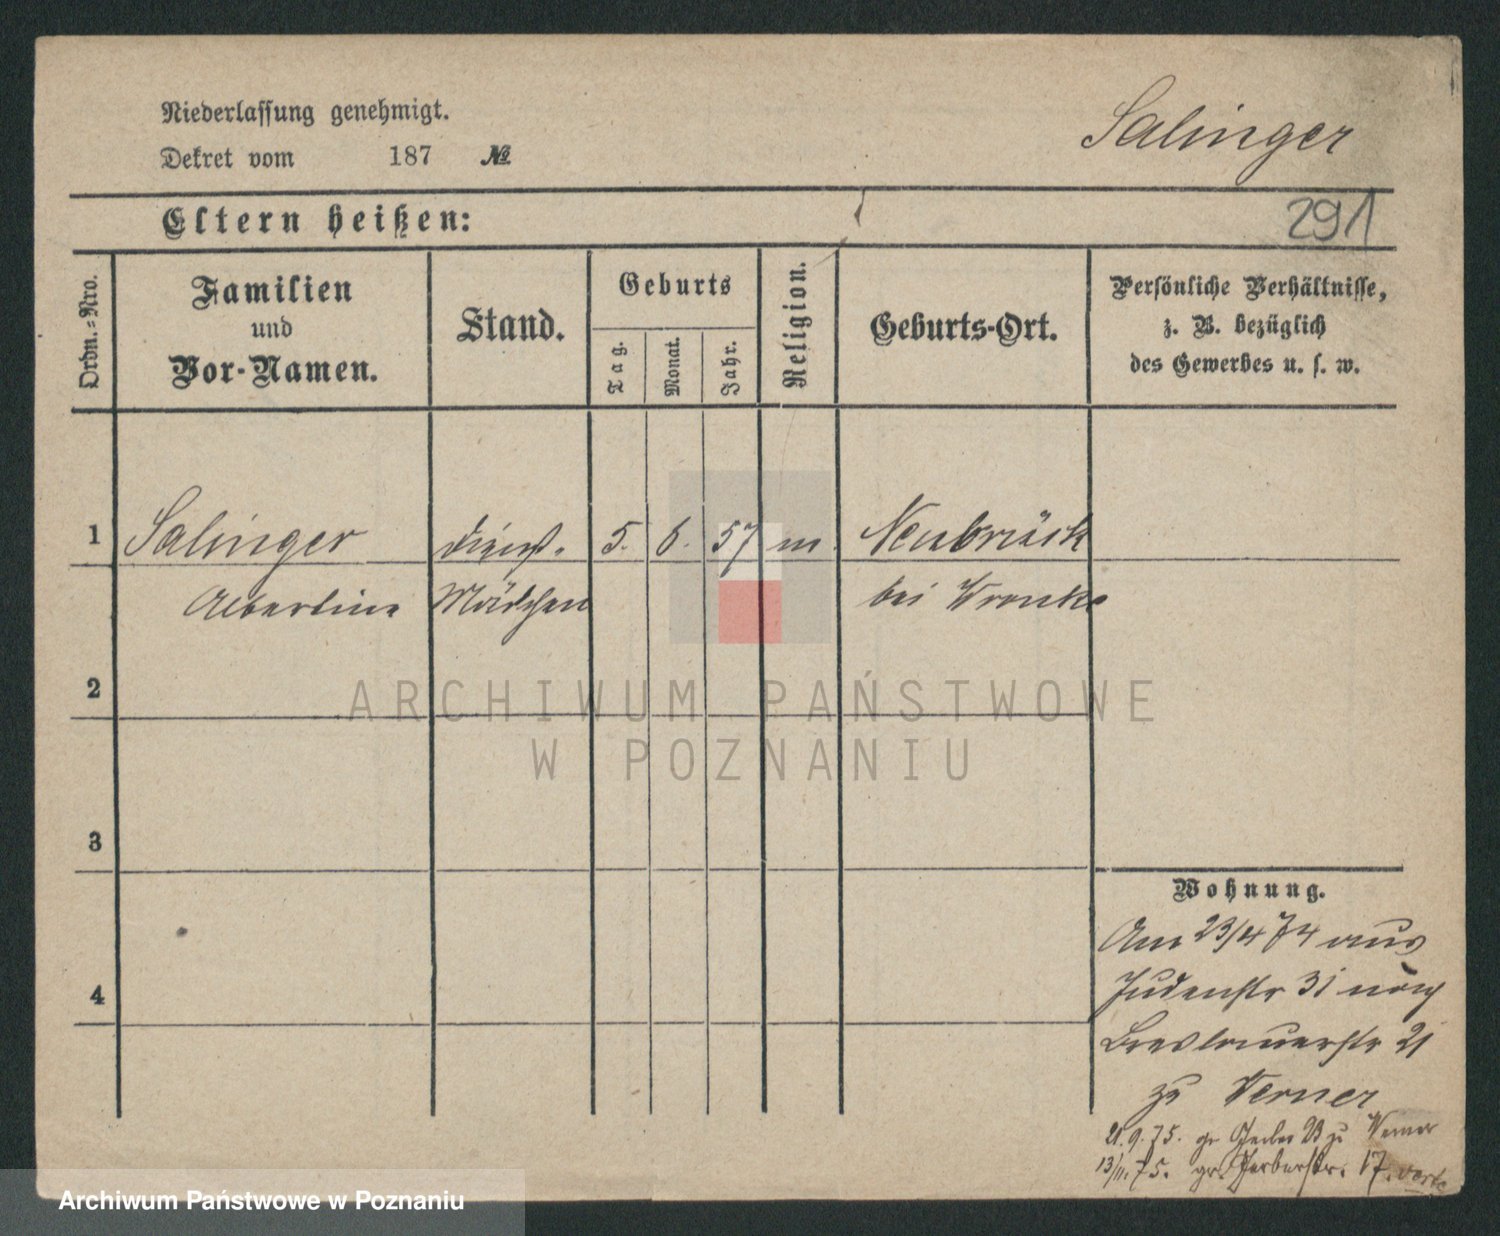 Niederlassung genehmigt.
Dekret vom 187 №
Salinger
Eltern heißen:
291
Ordn.=Nro.
Familien
und
Vor-Namen.
Stand.
Geburts
Tag.
Monat.
Jahr.
Religion.
Geburts-Ort.
Persönliche Verhältnisse,
z. B. bezüglich
des Gewerbes u. s. w.
1 Salinger Dienst- 5. 6. 57 m. Neubrück
Albertine Mädchen bei Wronke
2
3
4
ARCHIWUM PAŃSTWOWE
W POZNANIU
Wohnung.
Am 23/4 74 aus
Judenstr 31 nach
Breslauerstr 21
zu Werner
21.9.75. gr. 23 zu Werner
13/11.75. gr. Gerberstr. 17. verte
Archiwum Państwowe w Poznaniu